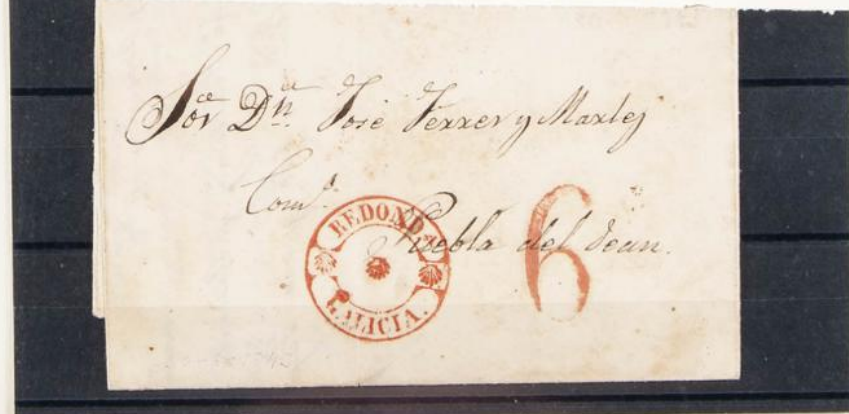 Sor Dn José Ferrer y Martz
Com.
Puebla del Dean.
REDONDA
GALICIA.
6